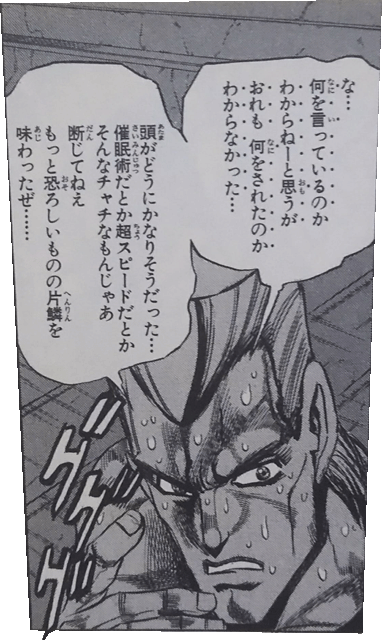 な…
何を言っているのか
わからねーと思うが
おれも 何をされたのか
わからなかった…
頭がどうにかなりそうだった…
催眠術だとか超スピードだとか
そんなチャチなもんじゃあ
断じてねえ
もっと恐ろしいものの片鱗を
味わったぜ……
ゴゴゴゴ